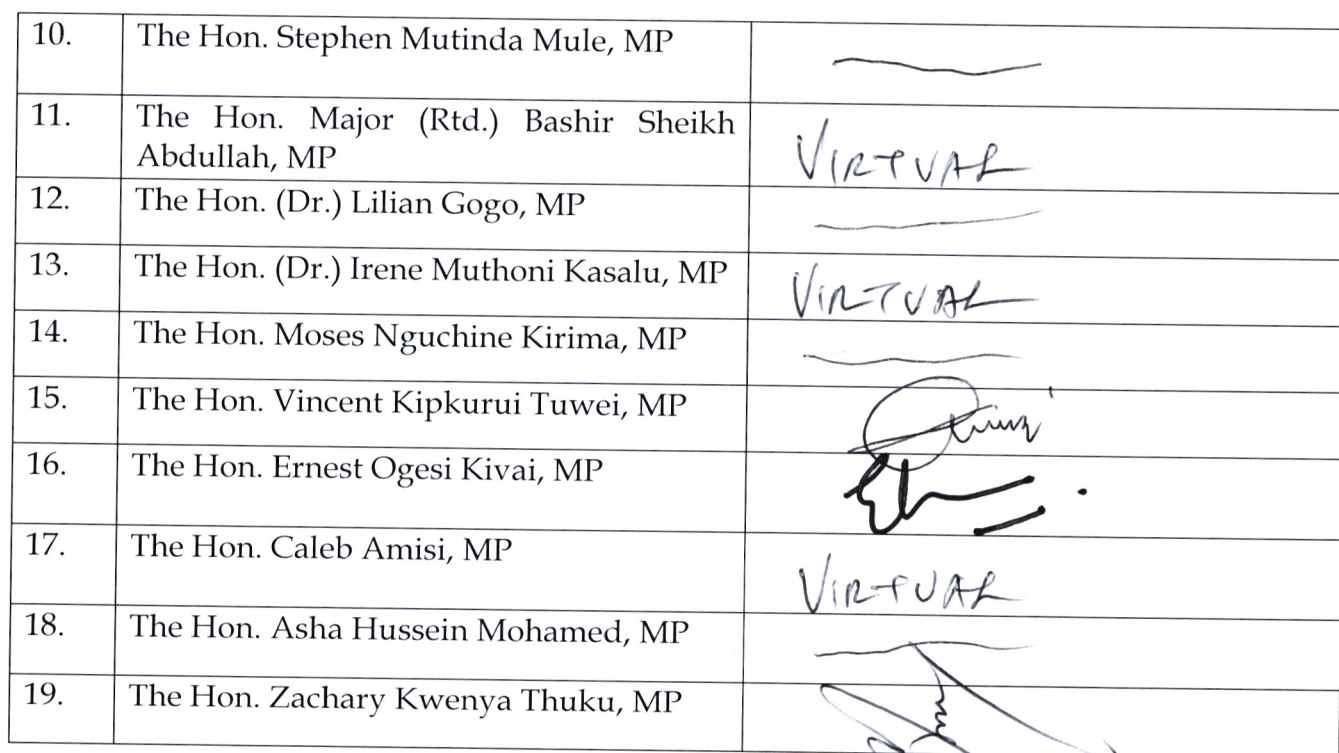 10. The Hon. Stephen Mutinda Mule, MP
11. The Hon. Major (Rtd.) Bashir Sheikh
Abdullah, MP VIRTUAL
12. The Hon. (Dr.) Lilian Gogo, MP
13. The Hon. (Dr.) Irene Muthoni Kasalu, MP VIRTUAL
14. The Hon. Moses Nguchine Kirima, MP
15. The Hon. Vincent Kipkurui Tuwei, MP
16. The Hon. Ernest Ogesi Kivai, MP
17. The Hon. Caleb Amisi, MP VIRTUAL
18. The Hon. Asha Hussein Mohamed, MP
19. The Hon. Zachary Kwenya Thuku, MP